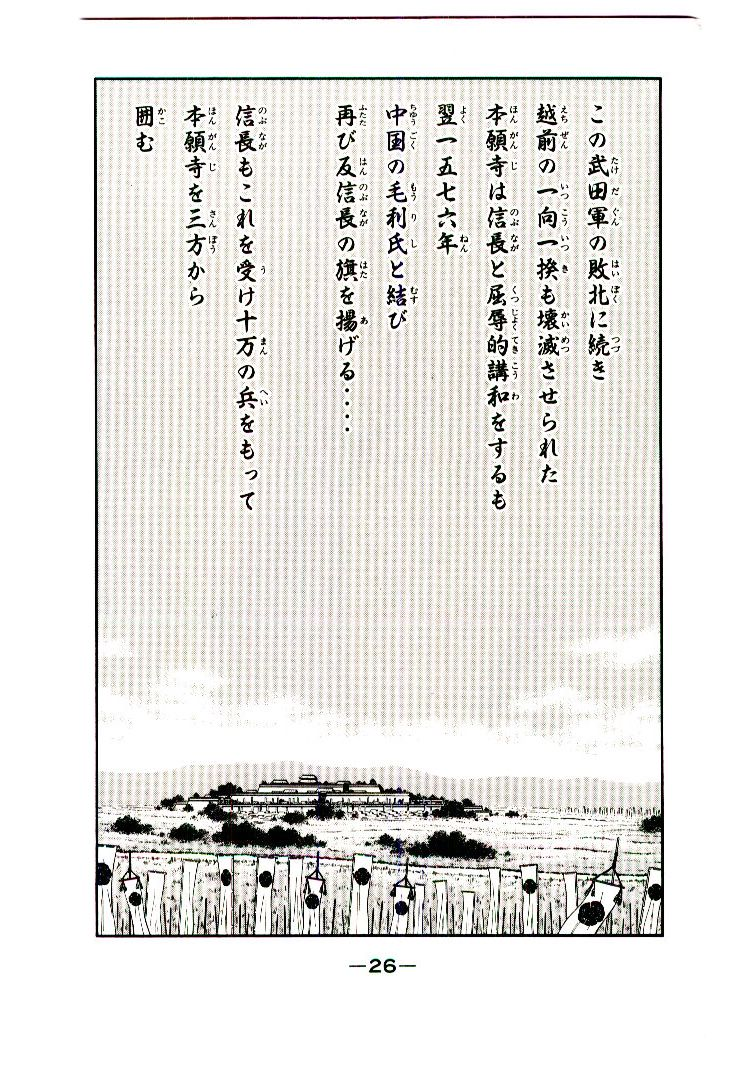 この武田軍の敗北に続き
越前の一向一揆も壊滅させられた
本願寺は信長と屈辱的講和をするも
翌一五七六年
中国の毛利氏と結び
再び反信長の旗を揚げる・・・・
信長もこれを受け十万の兵をもって
本願寺を三方から
囲む
—26—